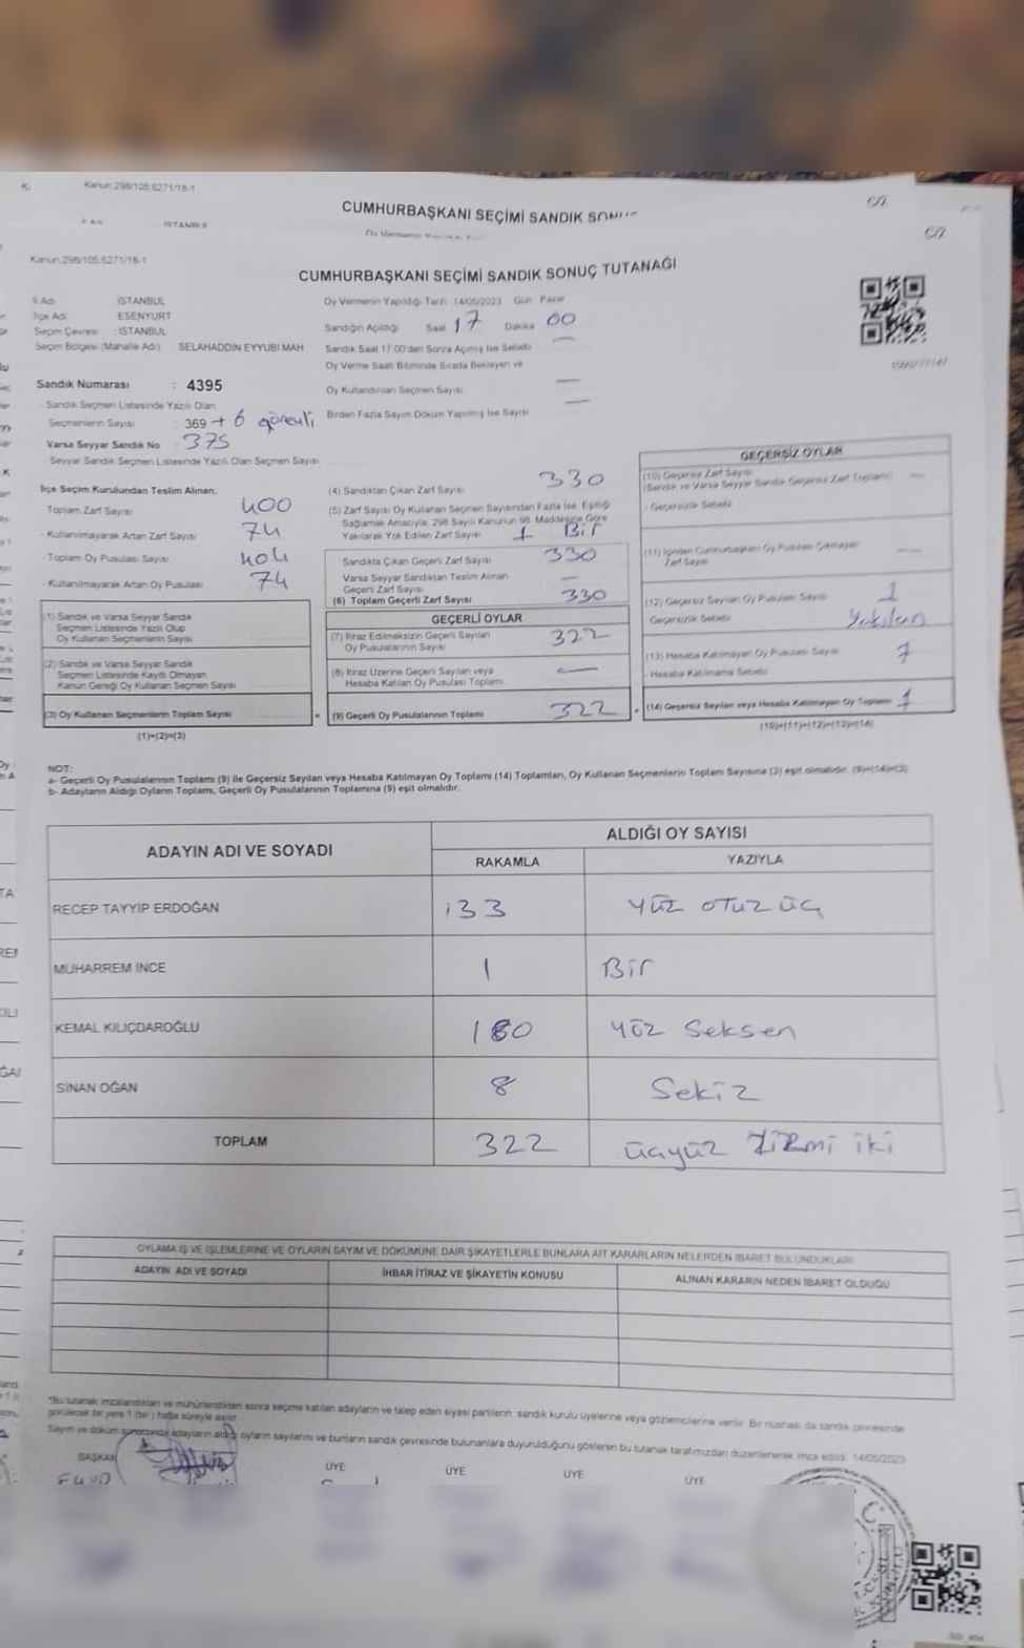 Kanun:298/105;6271/18-1
CUMHURBAŞKANI SEÇİMİ SANDIK
İSTANBUL
Kanun:298/105;6271/18-1
CUMHURBAŞKANI SEÇİMİ SANDIK SONUÇ TUTANAĞI
İl Adı : İSTANBUL
İlçe Adı : ESENYURT
Seçim Çevresi : İSTANBUL
Seçim Bölgesi (Mahalle Adı) SELAHADDİN EYYUBİ MAH
Sandık Numarası : 4395
Sandık Seçmen Listesinde Yazılı Olan
Seçmenlerin Sayısı 369 + 6 görevli
Varsa Seyyar Sandık No 375
Seyyar Sandık Seçmen Listesinde Yazılı Olan Seçmen Sayısı
Oy Vermenin Yapıldığı Tarih: 14/05/2023 Gün: Pazar
Sandığın Açıldığı Saat 17 Dakika 00
Sandık Saat 17:00'den Sonra Açılmış İse Sebebi
Oy Verme Saati Bitiminde Sırada Bekleyen ve
Oy Kullandırılan Seçmen Sayısı
Birden Fazla Sayım Döküm Yapılmış İse Sayısı
İlçe Seçim Kurulundan Teslim Alınan,
Toplam Zarf Sayısı 400
- Kullanılmayarak Artan Zarf Sayısı 74
- Toplam Oy Pusulası Sayısı 404
- Kullanılmayarak Artan Oy Pusulası 74
(1) Sandık ve Varsa Seyyar Sandık
Seçmen Listesinde Yazılı Olup
Oy Kullanan Seçmenlerin Sayısı
(2) Sandık ve Varsa Seyyar Sandık
Seçmen Listesinde Kayıtlı Olmayan
Kanun Gereği Oy Kullanan Seçmen Sayısı
(3) Oy Kullanan Seçmenlerin Toplam Sayısı
(1)+(2)=(3)
(4) Sandıktan Çıkan Zarf Sayısı 330
(5) Zarf Sayısı Oy Kullanan Seçmen Sayısından Fazla İse, Eşitliği
Sağlamak Amacıyla, 298 Sayılı Kanunun 98. Maddesine Göre
Yakılarak Yok Edilen Zarf Sayısı 1 Bir
Sandıkta Çıkan Geçerli Zarf Sayısı 330
Varsa Seyyar Sandıktan Teslim Alınan
Geçerli Zarf Sayısı
(6) Toplam Geçerli Zarf Sayısı 330
GEÇERLİ OYLAR
(7) İtiraz Edilmeksizin Geçerli Sayılan
Oy Pusulalarının Sayısı 322
(8) İtiraz Üzerine Geçerli Sayılan veya
Hesaba Katılan Oy Pusulası Toplamı
(9) Geçerli Oy Pusulalarının Toplamı 322
GEÇERSİZ OYLAR
(10) Geçersiz Zarf Sayısı
(Sandık ve Varsa Seyyar Sandık Geçersiz Zarf Toplamı)
- Geçersizlik Sebebi
(11) İçinden Cumhurbaşkanı Oy Pusulası Çıkmayan
Zarf Sayısı
(12) Geçersiz Sayılan Oy Pusulası Sayısı 1
Geçersizlik Sebebi Yakılan
(13) Hesaba Katılmayan Oy Pusulası Sayısı 7
- Hesaba Katılmama Sebebi
(14) Geçersiz Sayılan veya Hesaba Katılmayan Oy Toplamı
(10)+(11)+(12)+(13)=(14)
NOT:
a- Geçerli Oy Pusulalarının Toplamı (9) ile Geçersiz Sayılan veya Hesaba Katılmayan Oy Toplamı (14) Toplamları, Oy Kullanan Seçmenlerin Toplam Sayısına (3) eşit olmalıdır. (9)+(14)=(3)
b- Adayların Aldığı Oyların Toplamı, Geçerli Oy Pusulalarının Toplamına (9) eşit olmalıdır.
ADAYIN ADI VE SOYADI ALDIĞI OY SAYISI
RAKAMLA YAZIYLA
RECEP TAYYİP ERDOĞAN 133 YÜZ OTUZ ÜÇ
MUHARREM İNCE 1 Bir
KEMAL KILIÇDAROĞLU 180 YÜZ Seksen
SİNAN OĞAN 8 Sekiz
TOPLAM 322 üçyüz YİRMİ iki
OYLAMA İŞ VE İŞLEMLERİNE VE OYLARIN SAYIM VE DÖKÜMÜNE DAİR ŞİKAYETLERLE BUNLARA AİT KARARLARIN NELERDEN İBARET BULUNDUKLARI
ADAYIN ADI VE SOYADI İHBAR İTİRAZ VE ŞİKAYETİN KONUSU ALINAN KARARIN NEDEN İBARET OLDUĞU
*Bu tutanak imzalandıktan ve mühürlendikten sonra seçime katılan adayların ve talep eden siyasi partilerin sandık kurulu üyelerine veya gözlemcilerine verilir. Bir nüshası da sandık çevresinde
görülecek bir yere 1 (bir) hafta süreyle asılır.
Sayım ve döküm sonucunda adayların aldığı oyların sayılarını ve bunların sandık çevresinde bulunanlara duyurulduğunu gösteren bu tutanak tarafımızdan düzenlenerek imza edildi. 14/05/2023
BAŞKAN ÜYE ÜYE ÜYE ÜYE